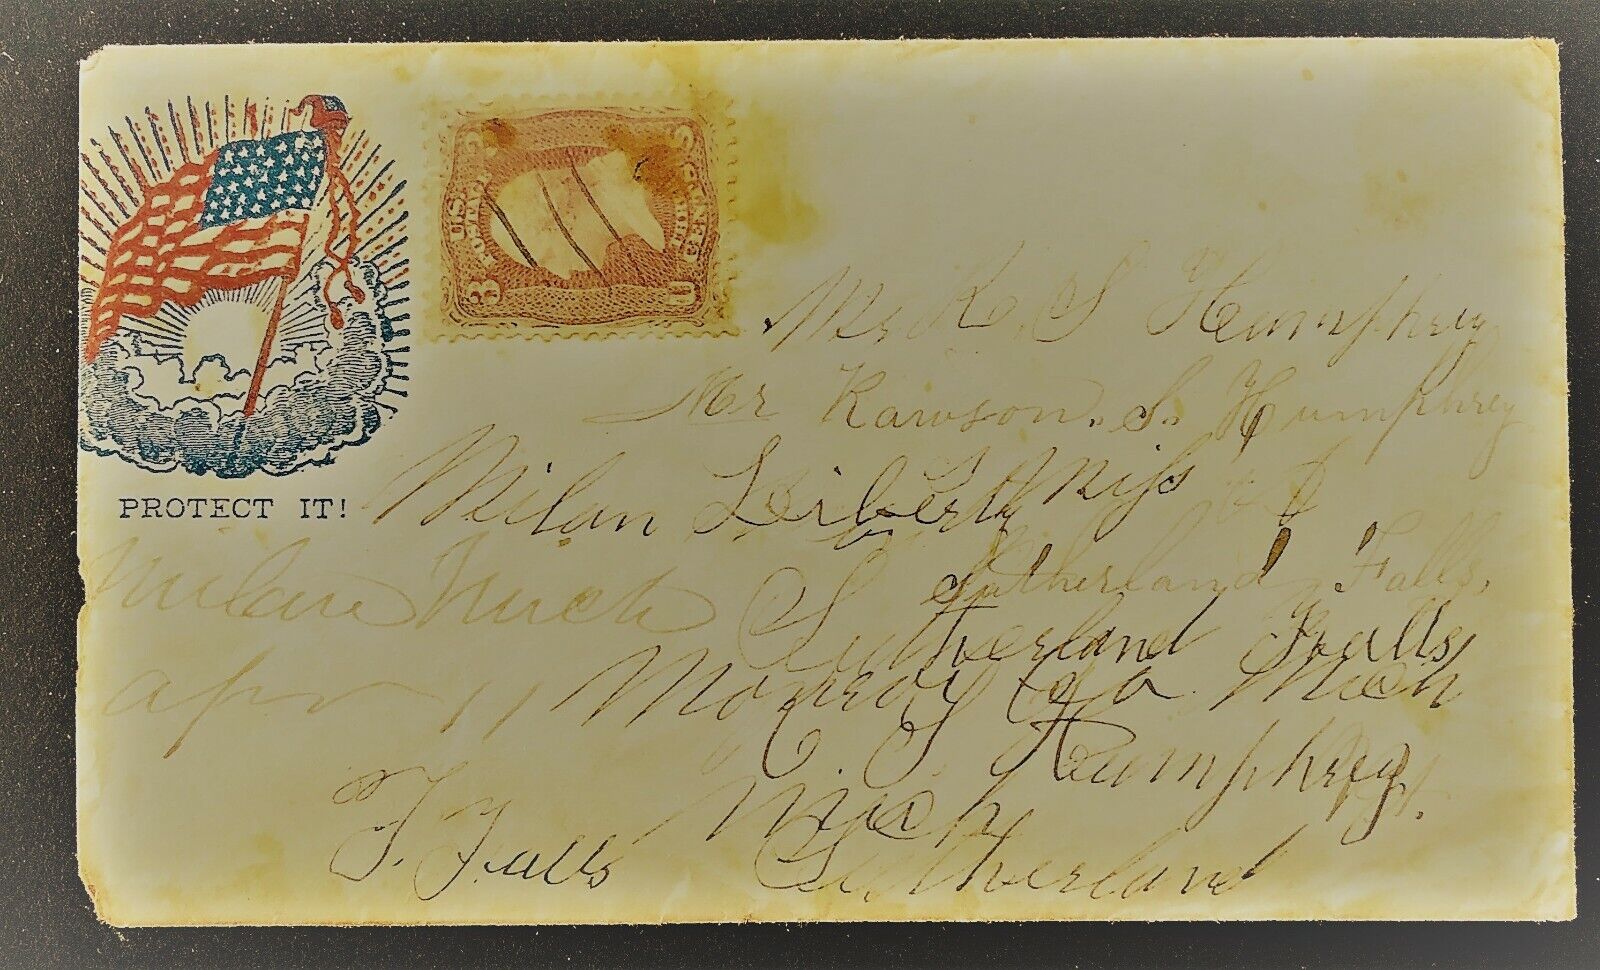 U.S. POSTAGE
THREE CENTS
3
U
PROTECT IT!
Mr R. S Humphrey
Mr Rawson. S. Humphrey
Milan Liberty Miss
Sutherland Falls,
Milan Mich
Sutherland Falls
Apr 11 Monroy Co Mich
S Humphrey
Mich
Falls Sutherland